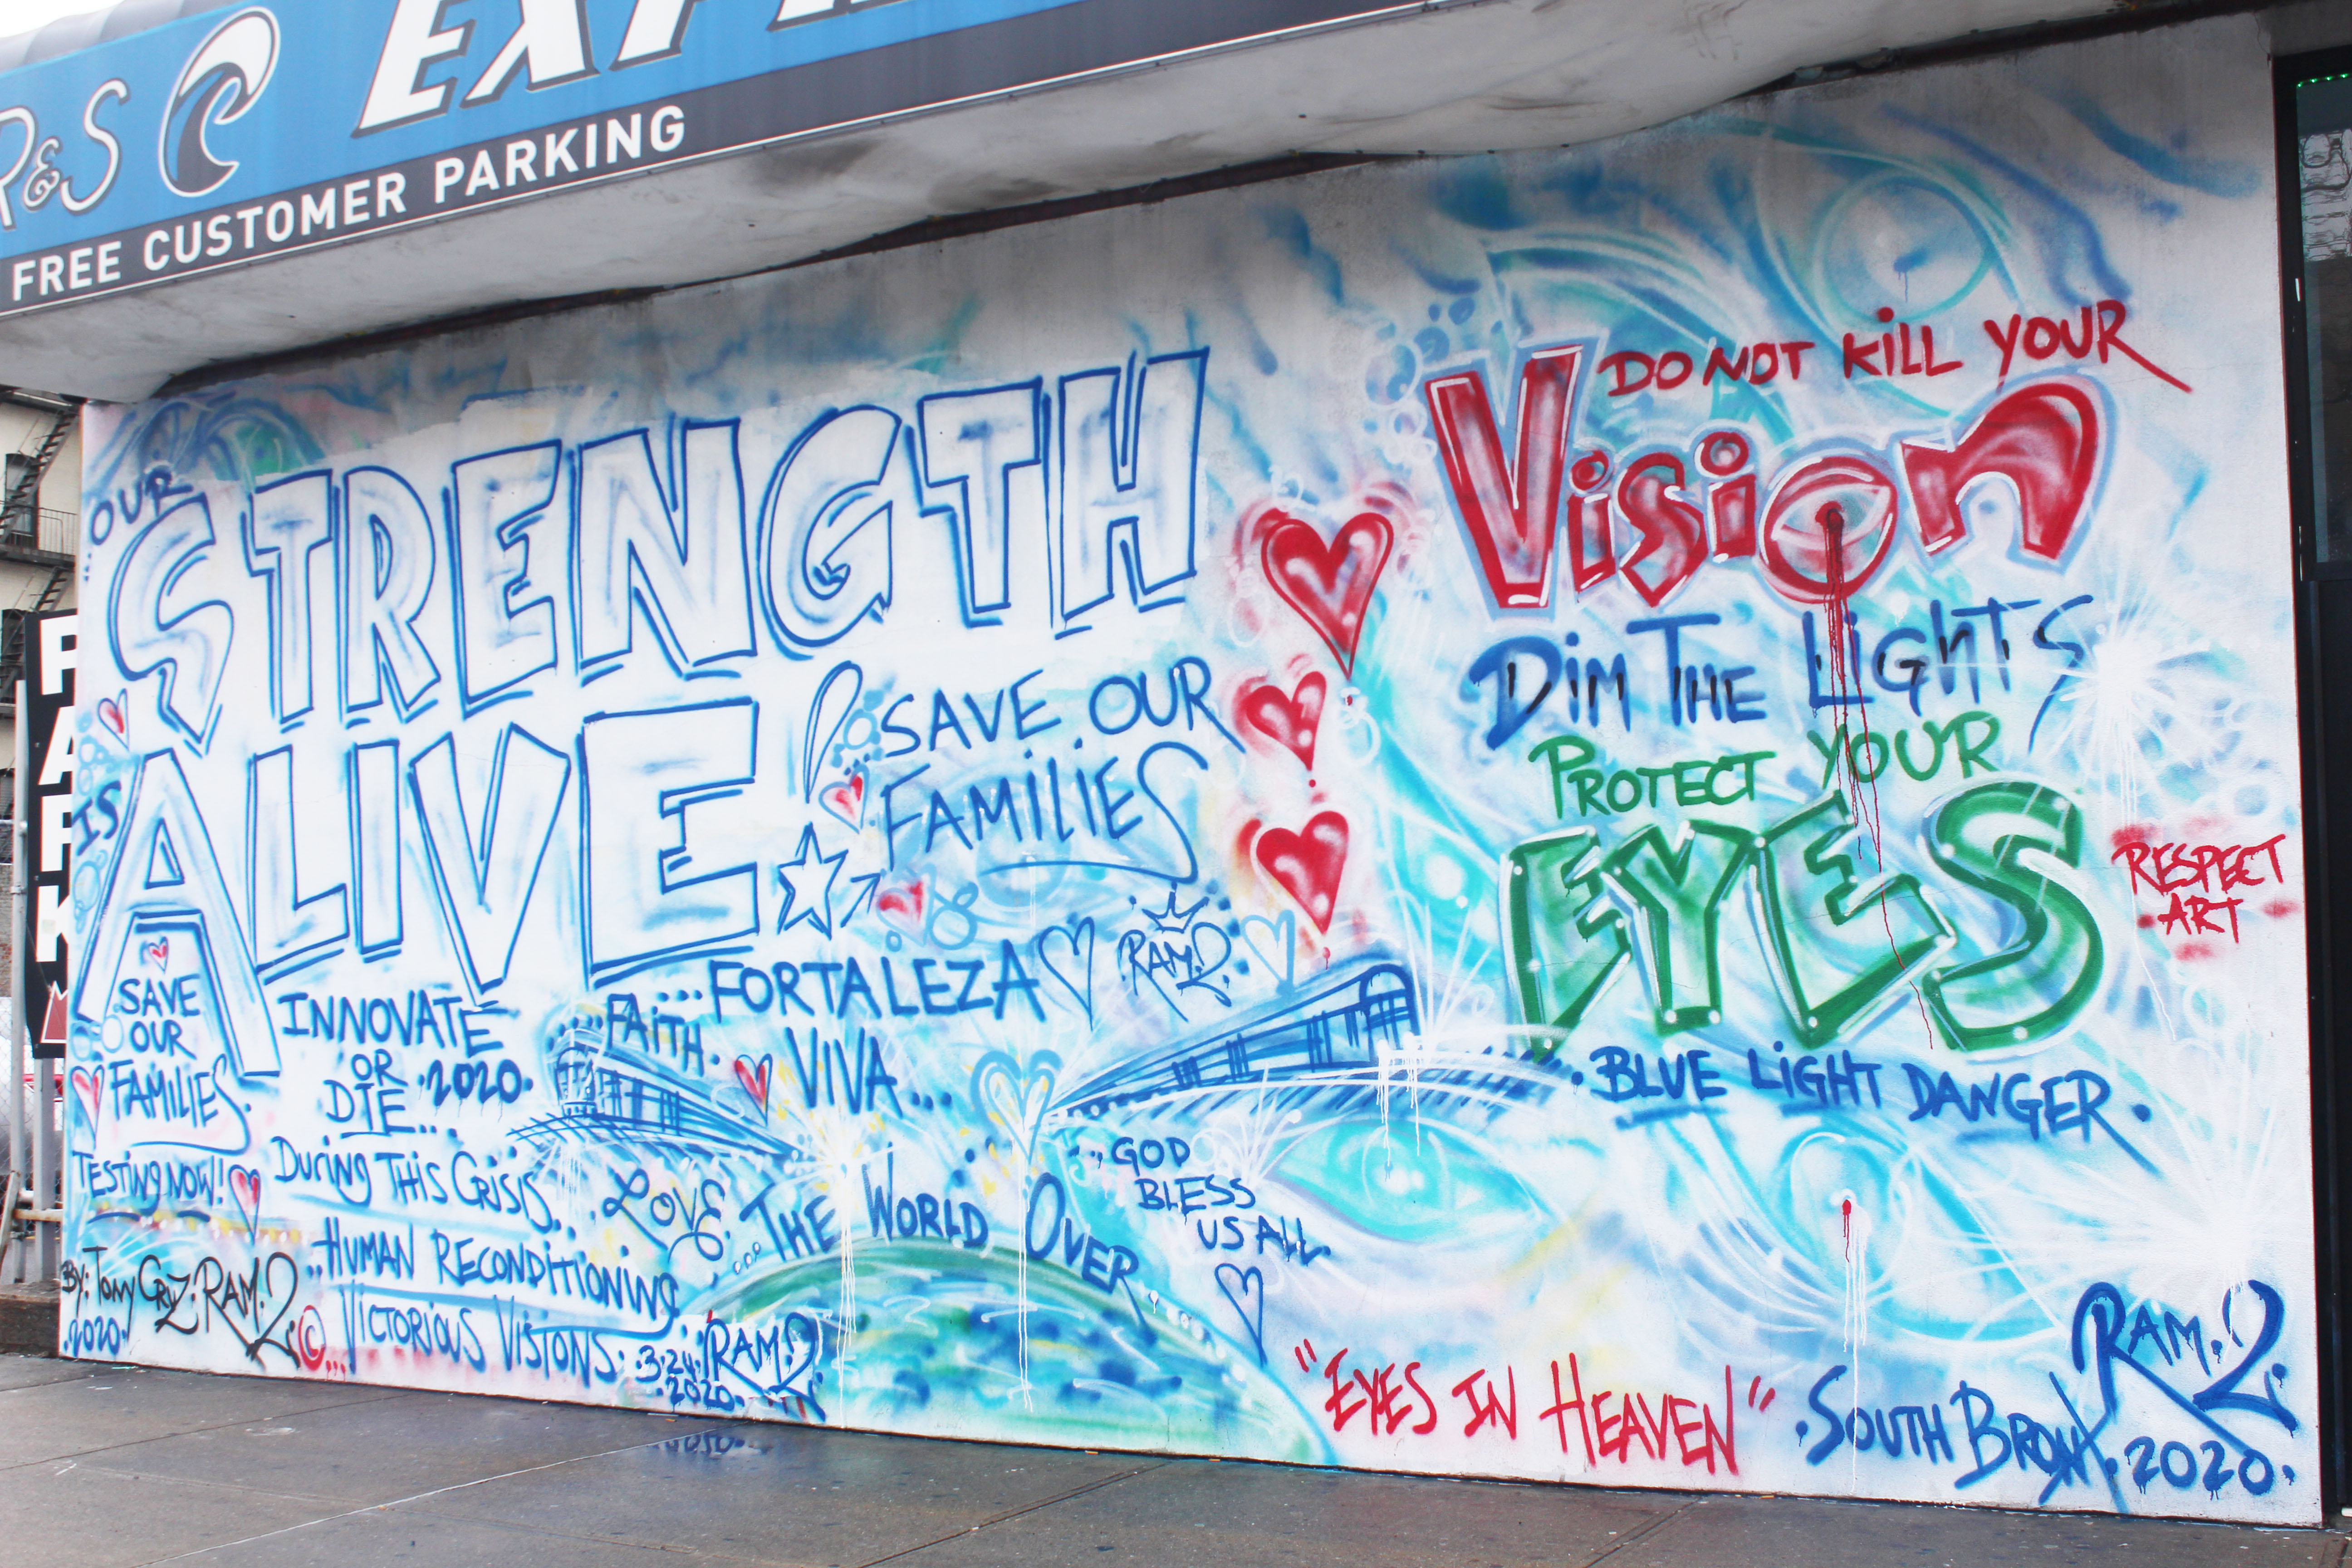 R&S
FREE CUSTOMER PARKING
PARK
OUR
STRENGTH
IS
ALIVE!
SAVE OUR
FAMILIES
SAVE
OUR
FAMILIES
TESTING NOW!!
INNOVATE
OR
DIE...
2020
FAITH
...FORTALEZA
VIVA...
RAM.2
DURING THIS CRISIS...
..HUMAN RECONDITIONING
©...VICTORIOUS VISIONS.
LOVE
THE WORLD OVER
GOD
BLESS
US ALL.
BY: TONY CRUZ: RAM.2
.2020.
.3.24.
.2020.
RAM.2
DO NOT KILL YOUR
VISION
DIM THE LIGHTS
PROTECT YOUR
EYES
RESPECT
ART
.BLUE LIGHT DANGER.
"EYES IN HEAVEN"
.SOUTH BRONX.
RAM.2.
2020.